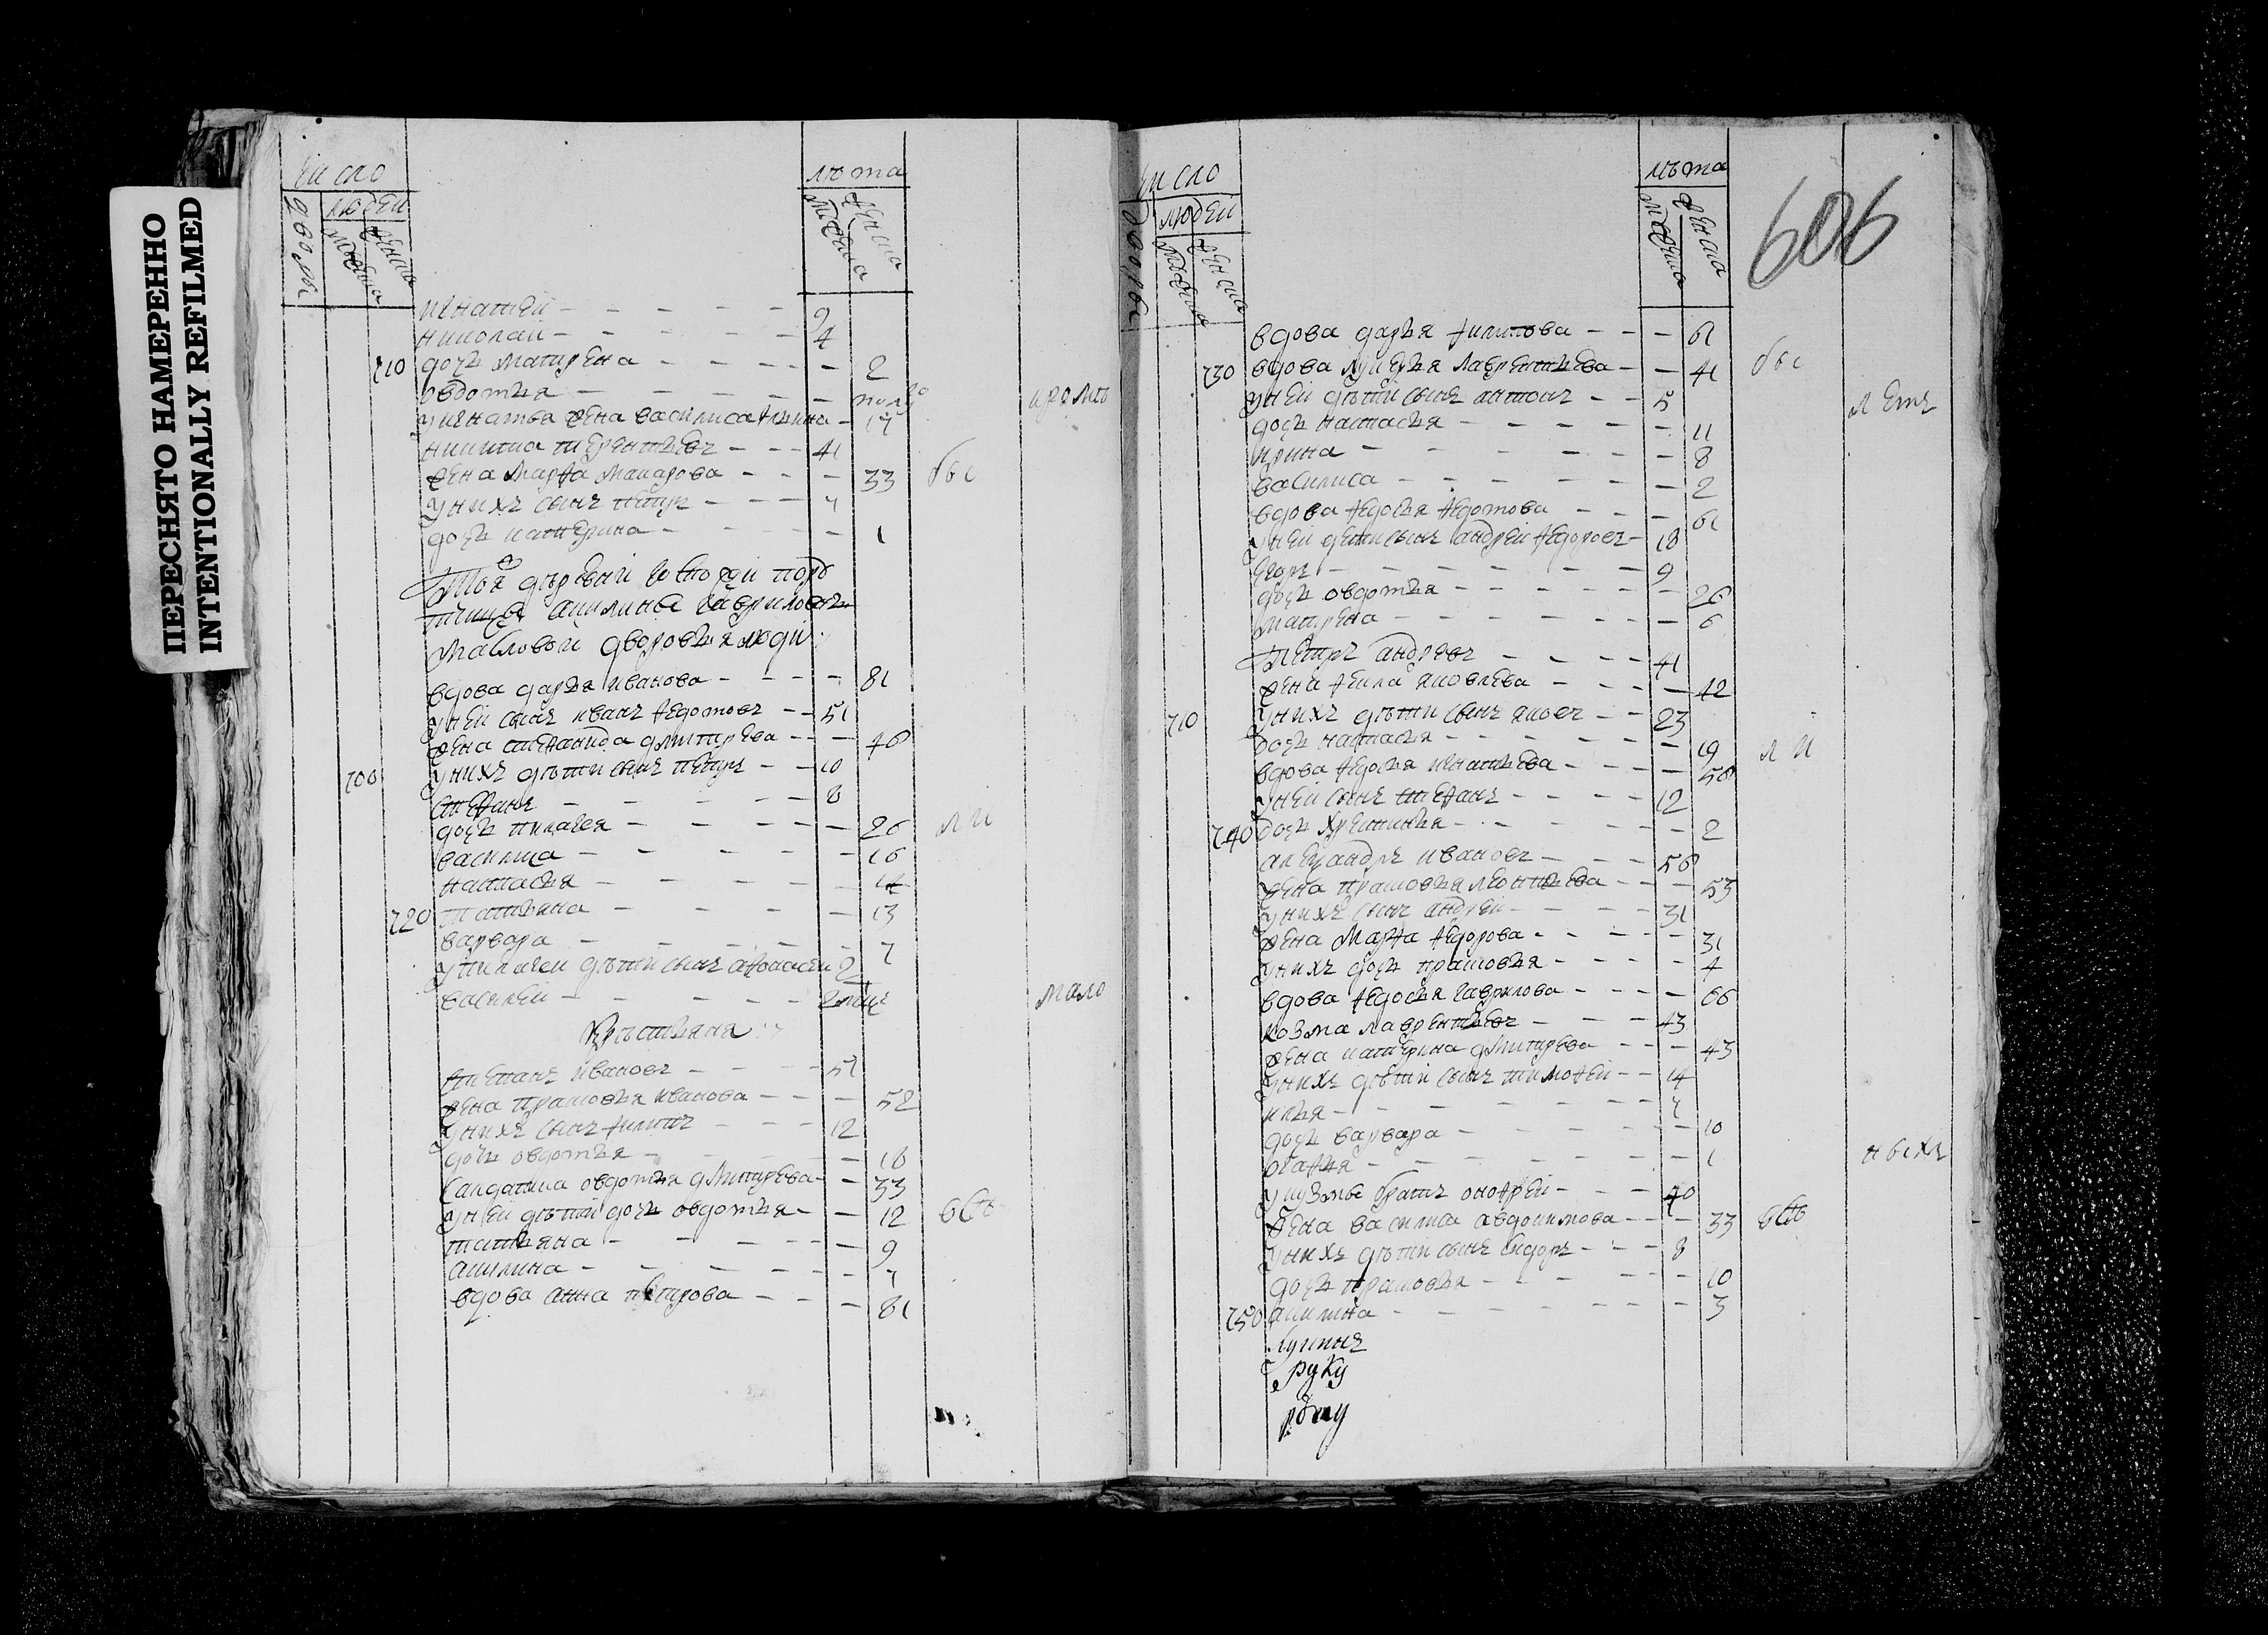 ПЕРЕСНЯТО НАМЕРЕННО
INTENTIONALLY REFILMED
число
дворов
людей
мужеска
женска
лѣта
мужеска
женска
игнатей 9
николай 4
710 дочь матрена 2
овдотья полго
кромѣ
у игнатья жена василиса 17
никита терентьевъ 41
жена марфа макарова 33
бы
у нихъ сынъ петръ 7
дочь катерина 1
Тоя деревни
акилины гавриловны
масловой дворовыя люди
вдова дарья иванова 81
у ней сынъ иванъ федотовъ 51
жена степанида дмитрева 46
700 у нихъ дѣти сынъ петръ 10
степанъ 8
дочь пилагея 26
ли
василиса 16
настасья 14
720 татьяна 13
варвара 7
у пилагеи дѣти сынъ афонасей 2
василей 2 мцъ
мало
крѣстьяня
степанъ ивановъ 51
жена прасковья иванова 52
у нихъ сынъ филипъ 12
дочь овдотья 16
салдатка овдотья дмитрева 33
у ней дѣти дочь овдотья 12
татьяна 9
акилина 7
вдова анна петрова 81
число
дворов
людей
мужеска
женска
лѣта
мужеска
женска
606
вдова дарья филипова 61
730 вдова лукерья лаврентьева 41
бы
у ней дѣти сынъ антонъ 5
летъ
дочь настасья 11
ирина 8
василиса 2
вдова федосья федотова 61
у ней дети сынъ андрей федоровъ 18
егоръ 9
дочь овдотья 26
матрена 6
Петръ андревъ 41
жена фекла яковлева 42
710 у нихъ дѣти сынъ яковъ 23
дочь настасья 19
ли
вдова федосья игнатьева 56
у ней сынъ степанъ 12
740 дочь хрестинья 2
александръ ивановъ 56
жена прасковья леонтьева 53
у нихъ сынъ андрей 31
жена марфа федорова 31
у нихъ дочь прасковья 4
вдова федосья гаврилова 66
козма лаврентьевъ 43
жена катерина дмитрева 43
у нихъ дѣти сынъ тимофей 14
илья 7
дочь варвара 10
огафья 1
ныхъ
у кузмы братъ онофрей 40
жена василиса авдокимова 33
у нихъ дѣти сынъ сидоръ 8
дочь прасковья 10
750 акилина 3
руку